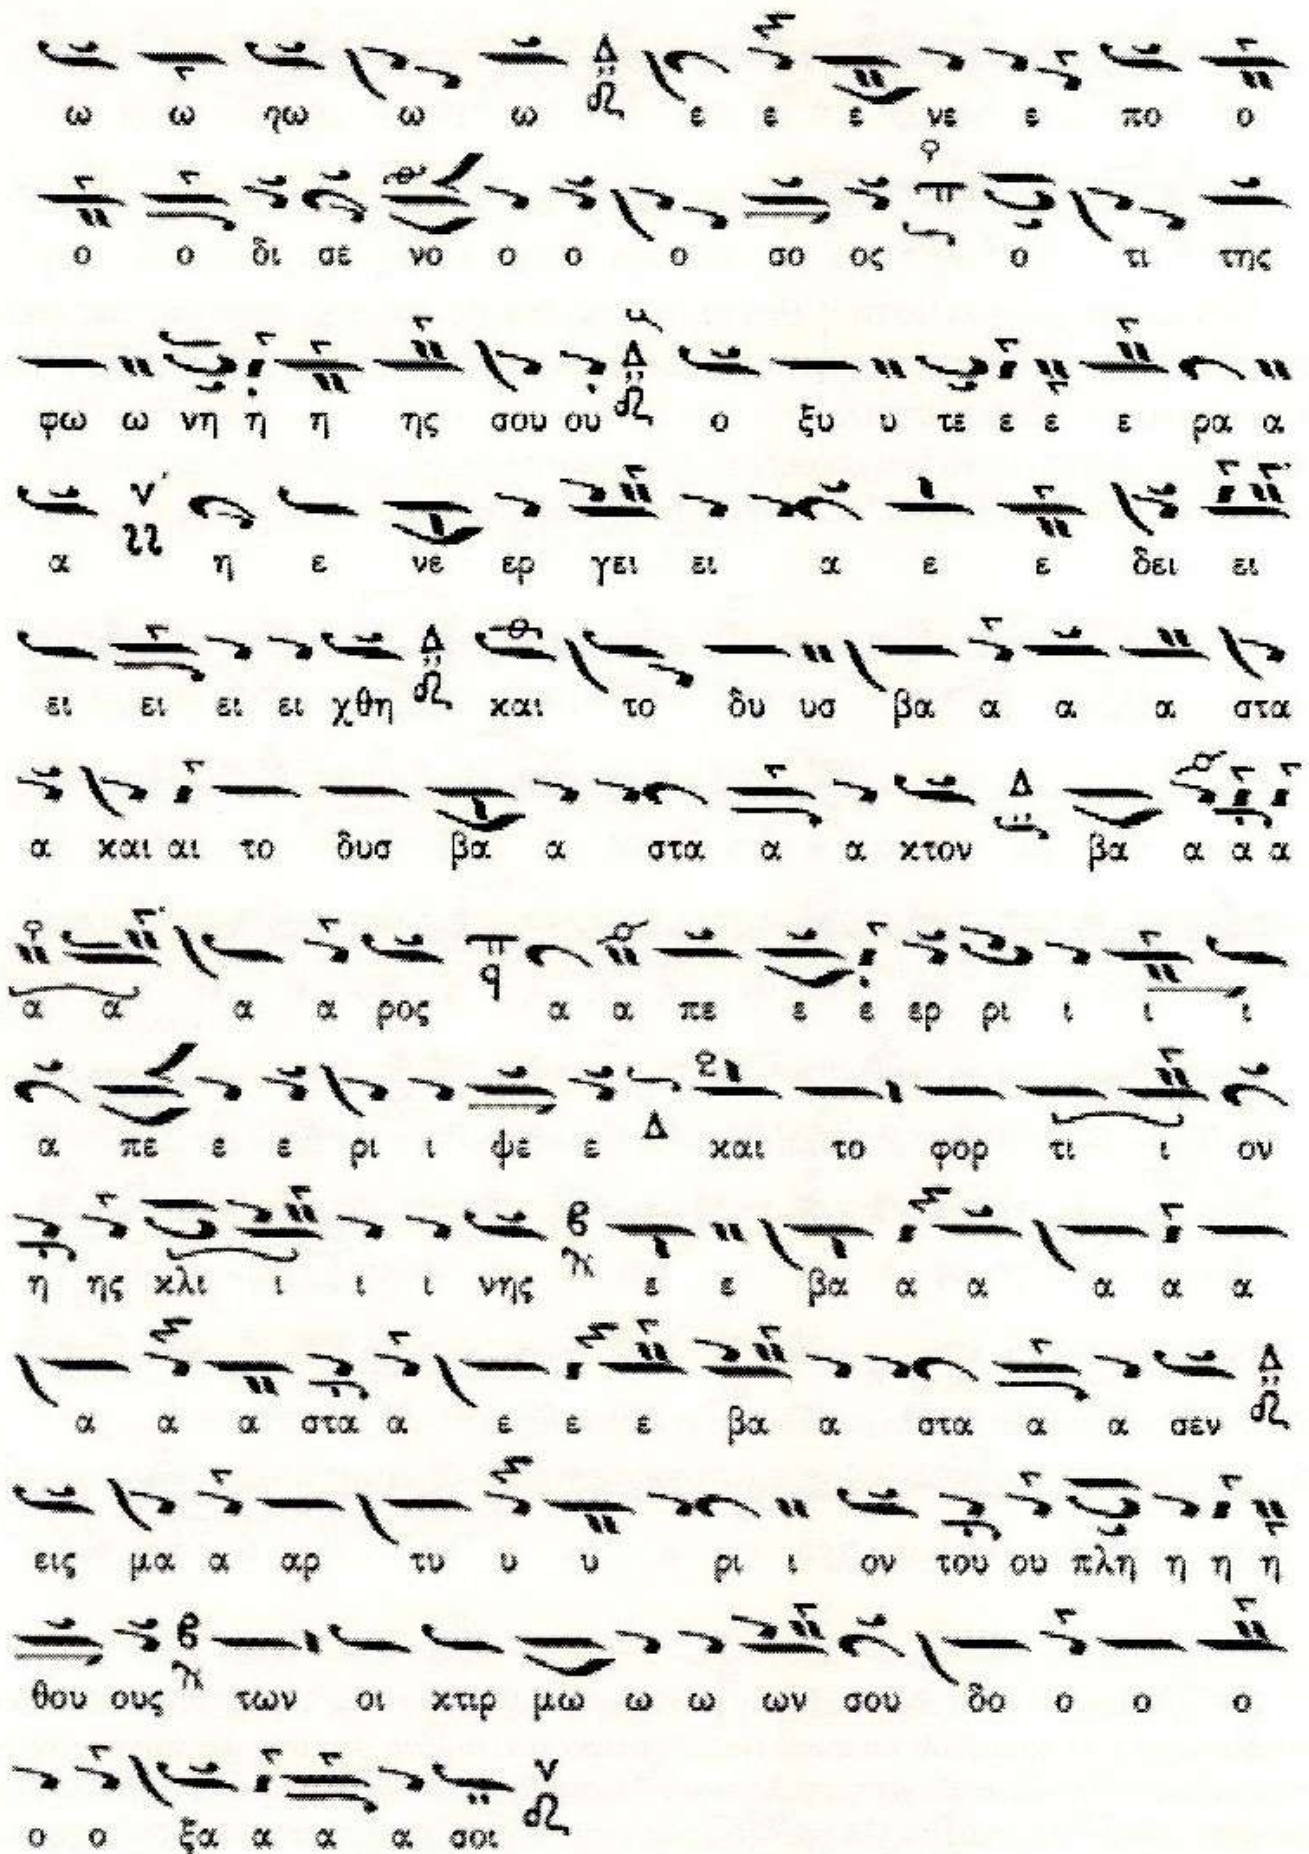 ω ω ηω ω ω Δ ε ε ε νε ε πο ο
ο ο δι σε νο ο ο ο σο ος ο τι της
φω ω νη η η ης σου ου Δ ο ξυ υ τε ε ε ε ρα α
α ν΄ η ε νε ερ γει ει α ε ε δει ει
ει ει ει ει χθη Δ και το δυ υσ βα α α α στα
α και αι το δυσ βα α στα α α κτον Δ βα α α α
α α α α ρος q α α πε ε ε ερ ρι ι ι ι
α πε ε ε ρι ι ψε ε Δ και το φορ τι ι ον
η ης κλι ι ι ι νης ϐ ε ε βα α α α α α
α α α στα α ε ε ε βα α στα α α σεν Δ
εις μα α αρ τυ υ υ ρι ι ον του ου πλη η η η
θου ους ϐ των οι κτιρ μω ω ω ων σου δο ο ο ο
ο ο ξα α α α σοι ν